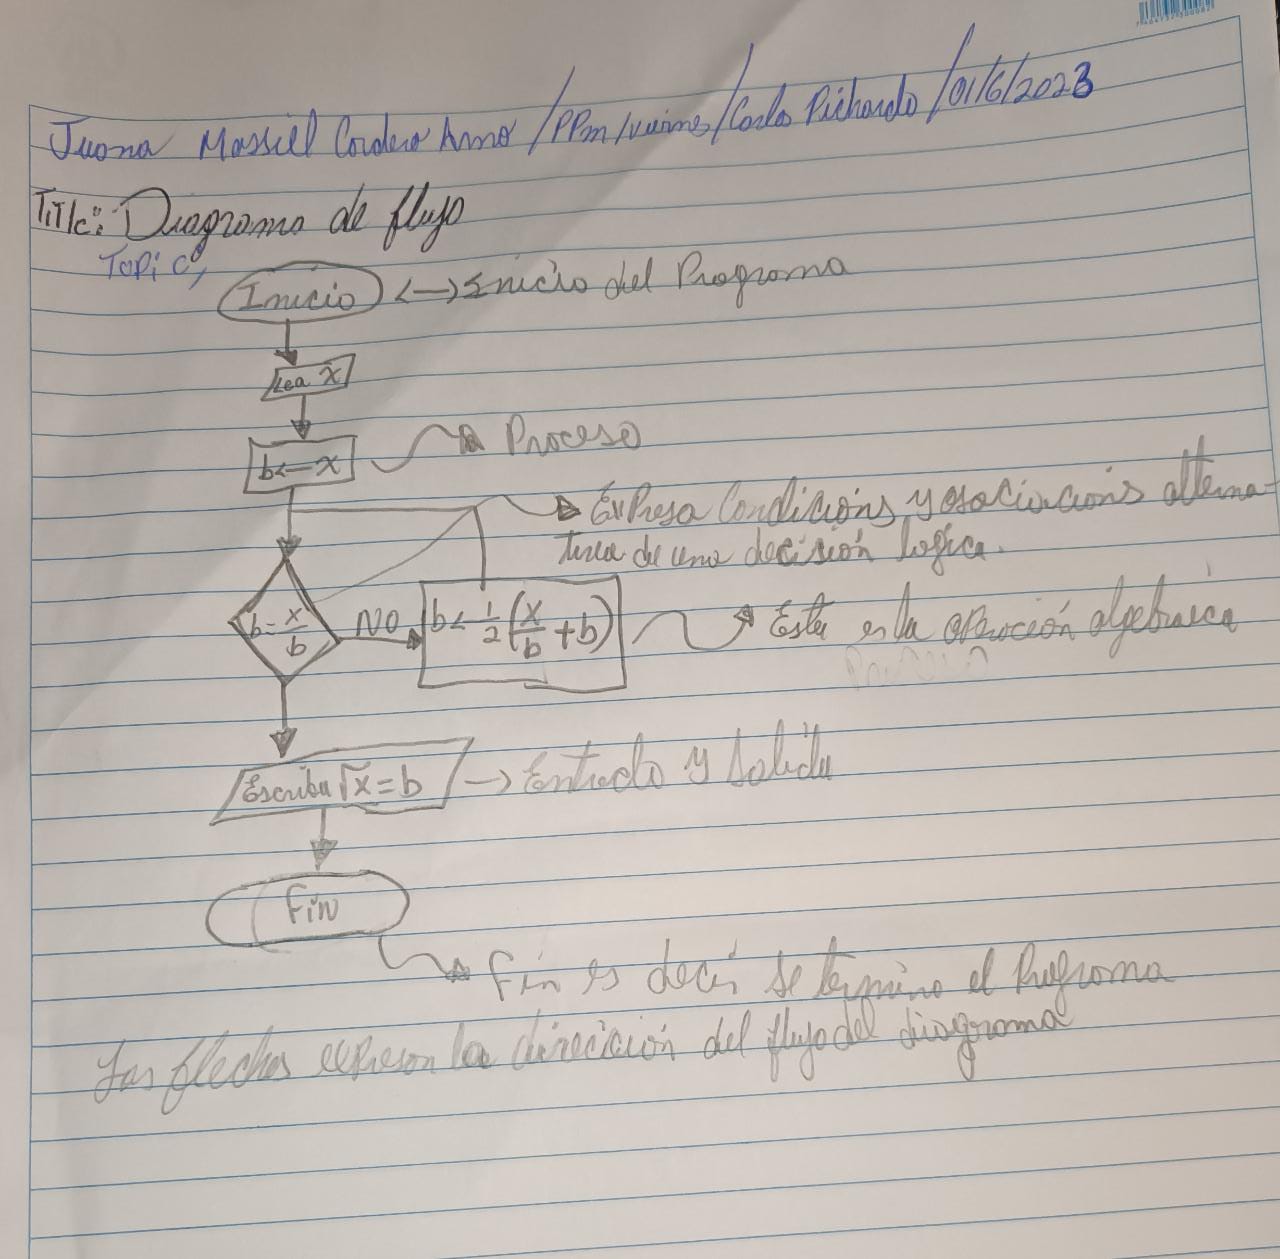 Juana Massiel Cordero Amo /PPm/viernes/Carlos Pichardo /01/6/2023
Title: Diagrama de flujo
Topic,
Inicio <—> Inicio del Programa
Lea X
b<—x Proceso
Expresa Condicions y asociacions alterna-
tiva de una decisión logica.
b=x/b NO b<-1/2(x/b+b) Esta es la operación algebraica
Escriba √x=b —> Entrada y Salida
Fin
Fin es decir se termino el Programa
Las flechas expresan la direcición del flujo del diagrama